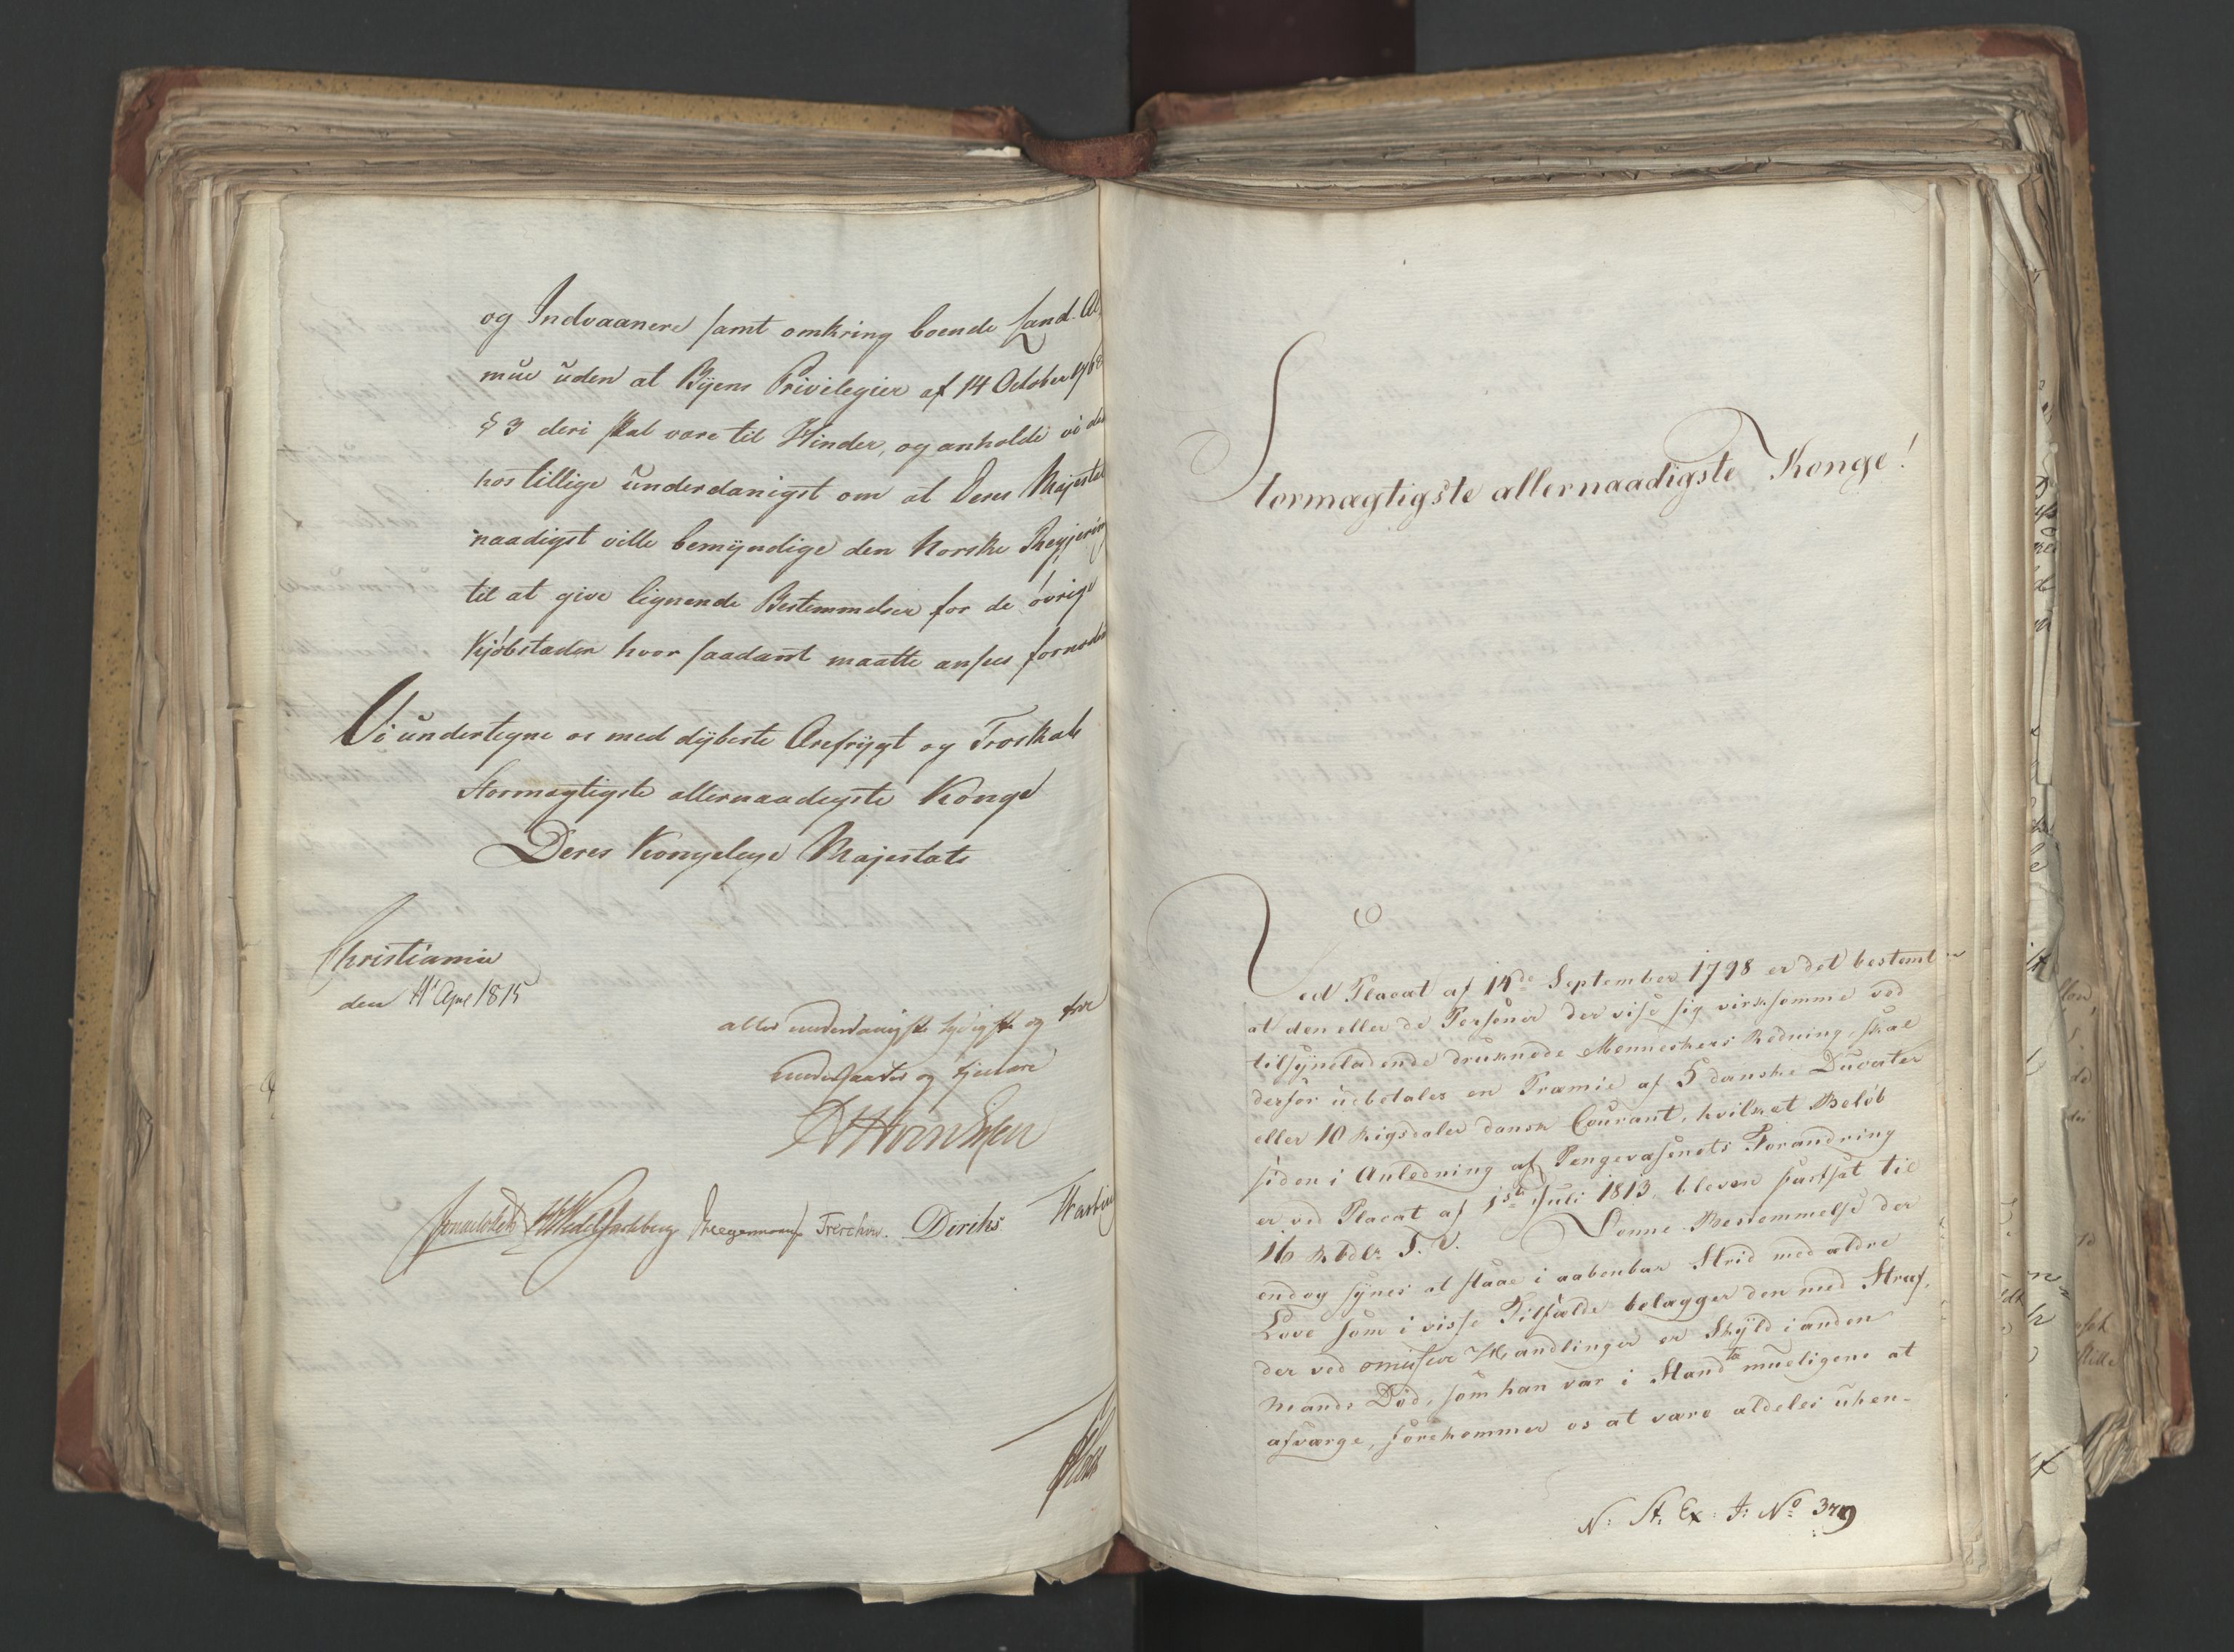 og Indvaanere samt omkring boende Land-Al,
mue uden at Byens Privilegier af 14 October 1768
§ 3 deri skal være til Hinder, og anholde vi der
hos tillige underdanigst om at Deres Majestæt
naadigst ville bemyndige den Norske Regjering
til at give lignende Bestemmelser for de øvrige
Kjøbstæder hvor saadant maatte ansees fornøden
Vi undertegne os med dybeste Ærefrygt og Troskab
Stormægtigste allernaadigste Konge
Deres Kongelige Majestæts
Christiania
den April 1815
allerunderdanigste lydigste og troe
undersaatter og tjenere
Treschow. Diriks
Stormægtigste allernaadigste Konge!
Ved Placat af 14de September 1798 er det bestemt
at den eller de Personer der vise sig virksomme ved
tilsyneladende druknede Menneskers Redning, skal
derfor udbetales en Præmie af 5 danske Ducater
eller 10 Rigsdaler dansk Courant, hvilket Beløb
siden i Anledning af Pengevæsenets Forandring
er ved Placat af 1ste Juli 1813, bleven fastsat til
16 Rbdlr. S. V. Denne Bestemmelse der
endog synes at staae i aabenbar Strid med ældre
Love som i visse Tilfælde belægger den med Straf,
der ved omissive Handlinger er Skyld i anden
Mands Død, som han var i Stand ta mueligene at
afværge, forekommer os at være aldeles uhen-
N: St: Ex: J: No 379